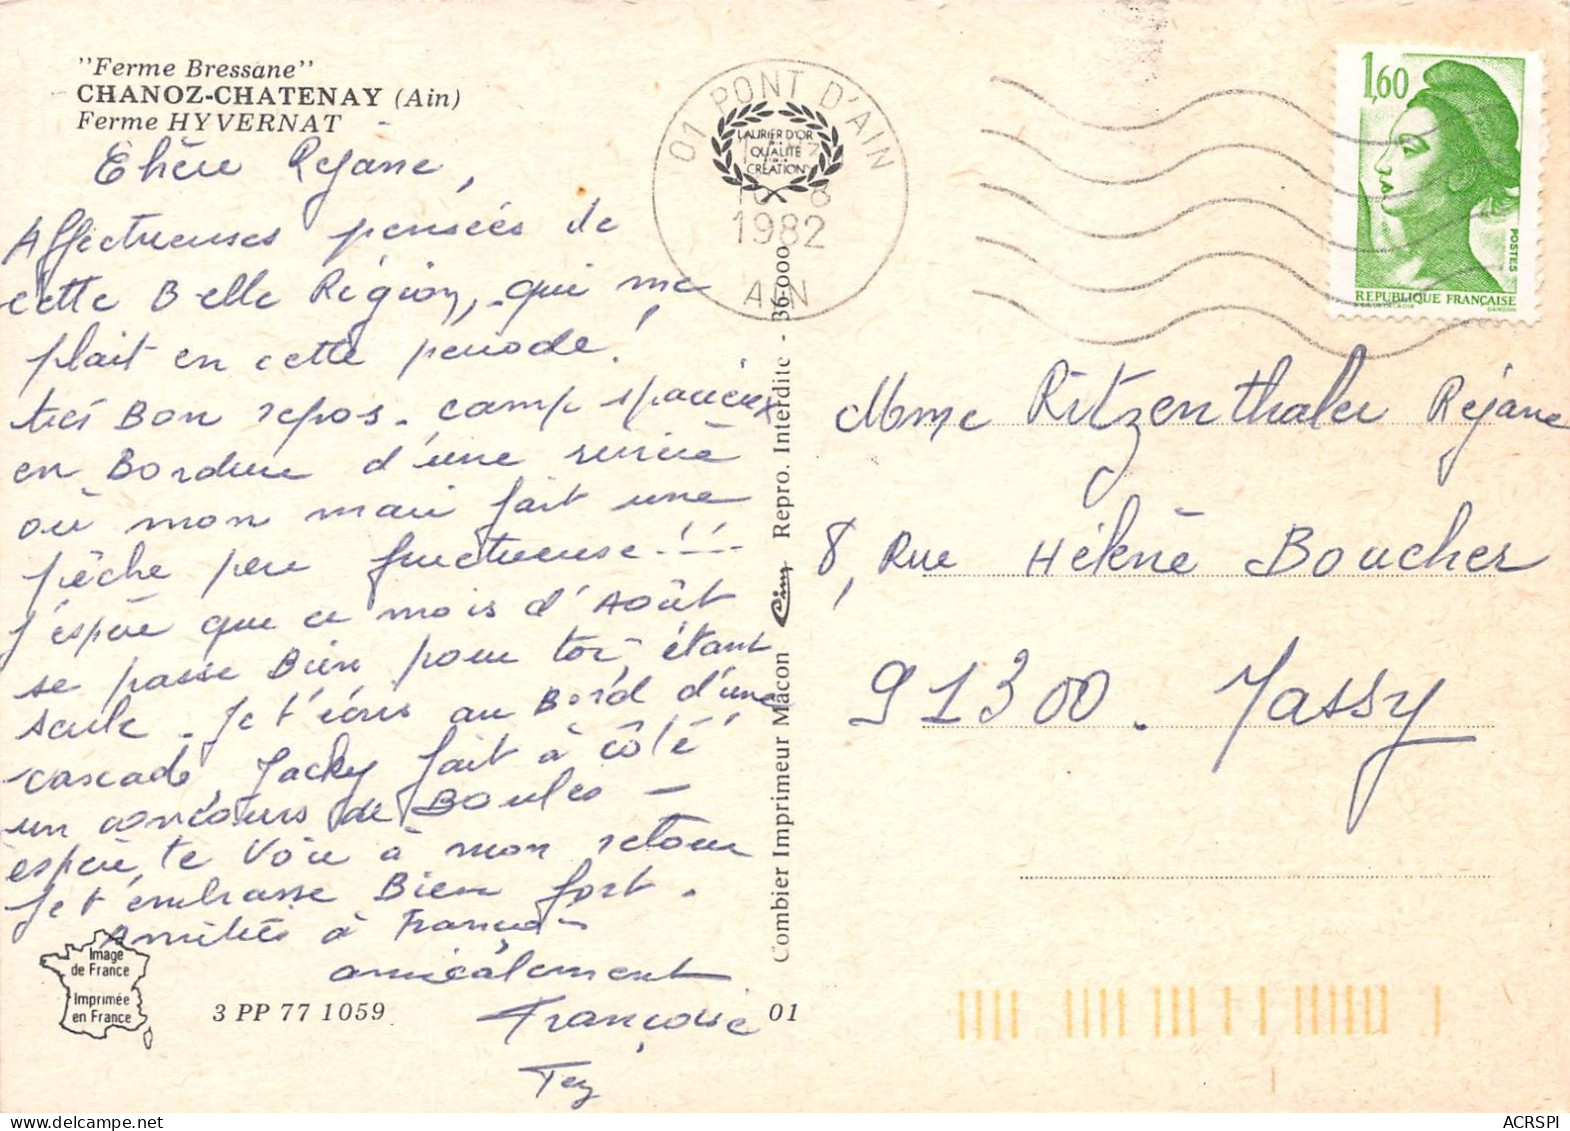 "Ferme Bressane"
CHANOZ-CHATENAY (Ain)
Ferme HYVERNAT
Chère Rejane,
Affectueuses pensées de
cette Belle Région, qui me
plait en cette periode!
très Bon repos. camp spacieux
en Bordure d'une rivière
où mon mari fait une
pêche peu fructueuse!!!
J'espère que ce mois d'Août
se passe Bien pour toi, étant
seule. Je t'écris au Bord d'une
cascade, Jacky fait à côté
un concours de Boules -
espère te Voir à mon retour
Je t'embrasse Bien fort.
Amitiés à
amicalement
Françoise
Image
de France
Imprimée
en France
3 PP 77 1059
01
Combier Imprimeur Mâcon Cim Repro. Interdite - 36-000
01 PONT D'AIN
1982
AIN
LAURIER D'OR
QUALITÉ
CRÉATION
1,60
POSTES
REPUBLIQUE FRANÇAISE
GANDON
Mme Ritzenthaler Rejane
8, Rue Hélène Boucher
91300. Massy
ACRSPI